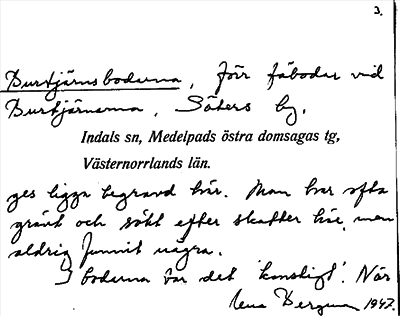 3.
Burtjärnsbodarna, förr fäbodar vid
Burtjärnarna, Säters by.
Indals sn, Medelpads östra domsagas tg,
Västernorrlands län.
ges ligga begravd här. Man har ofta
grävt och sökt efter skatter här, men
aldrig funnit några.
I bodarna var det 'konstigt'. När
Lena Bergman 1947.